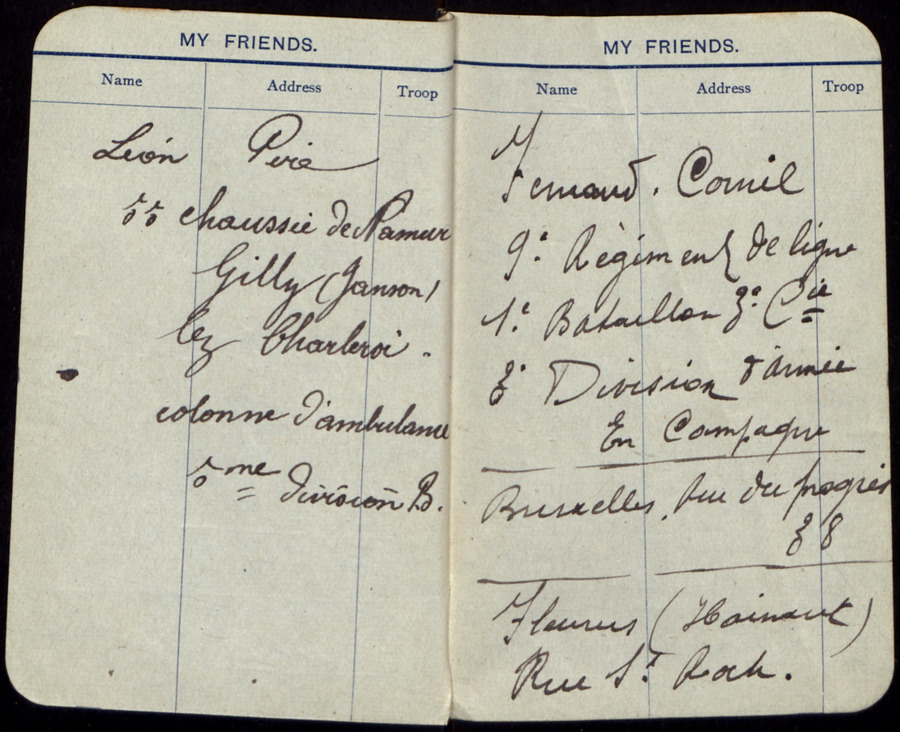 MY FRIENDS.
Name Address Troop
Léon Pire
55 chaussée de Namur
Gilly (Janson)
lez Charleroi.
colonne d'ambulance
5me division B.
MY FRIENDS.
Name Address Troop
Fernand. Cornil
9e Régiment de ligne
1e Bataillon 3e Cie
3e Division d'armée
En Campagne
Bruxelles, rue du progrès
38
Fleurus (Hainaut)
Rue St Roch.